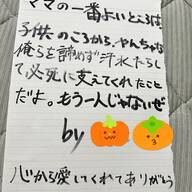 ママの一番よいところは
子供のころから、やんちゃな
俺らを諦めず汗水たらし
て必死に支えてくれたこと
だよ。もう一人じゃないぜ
by
心から愛してくれてありがとう